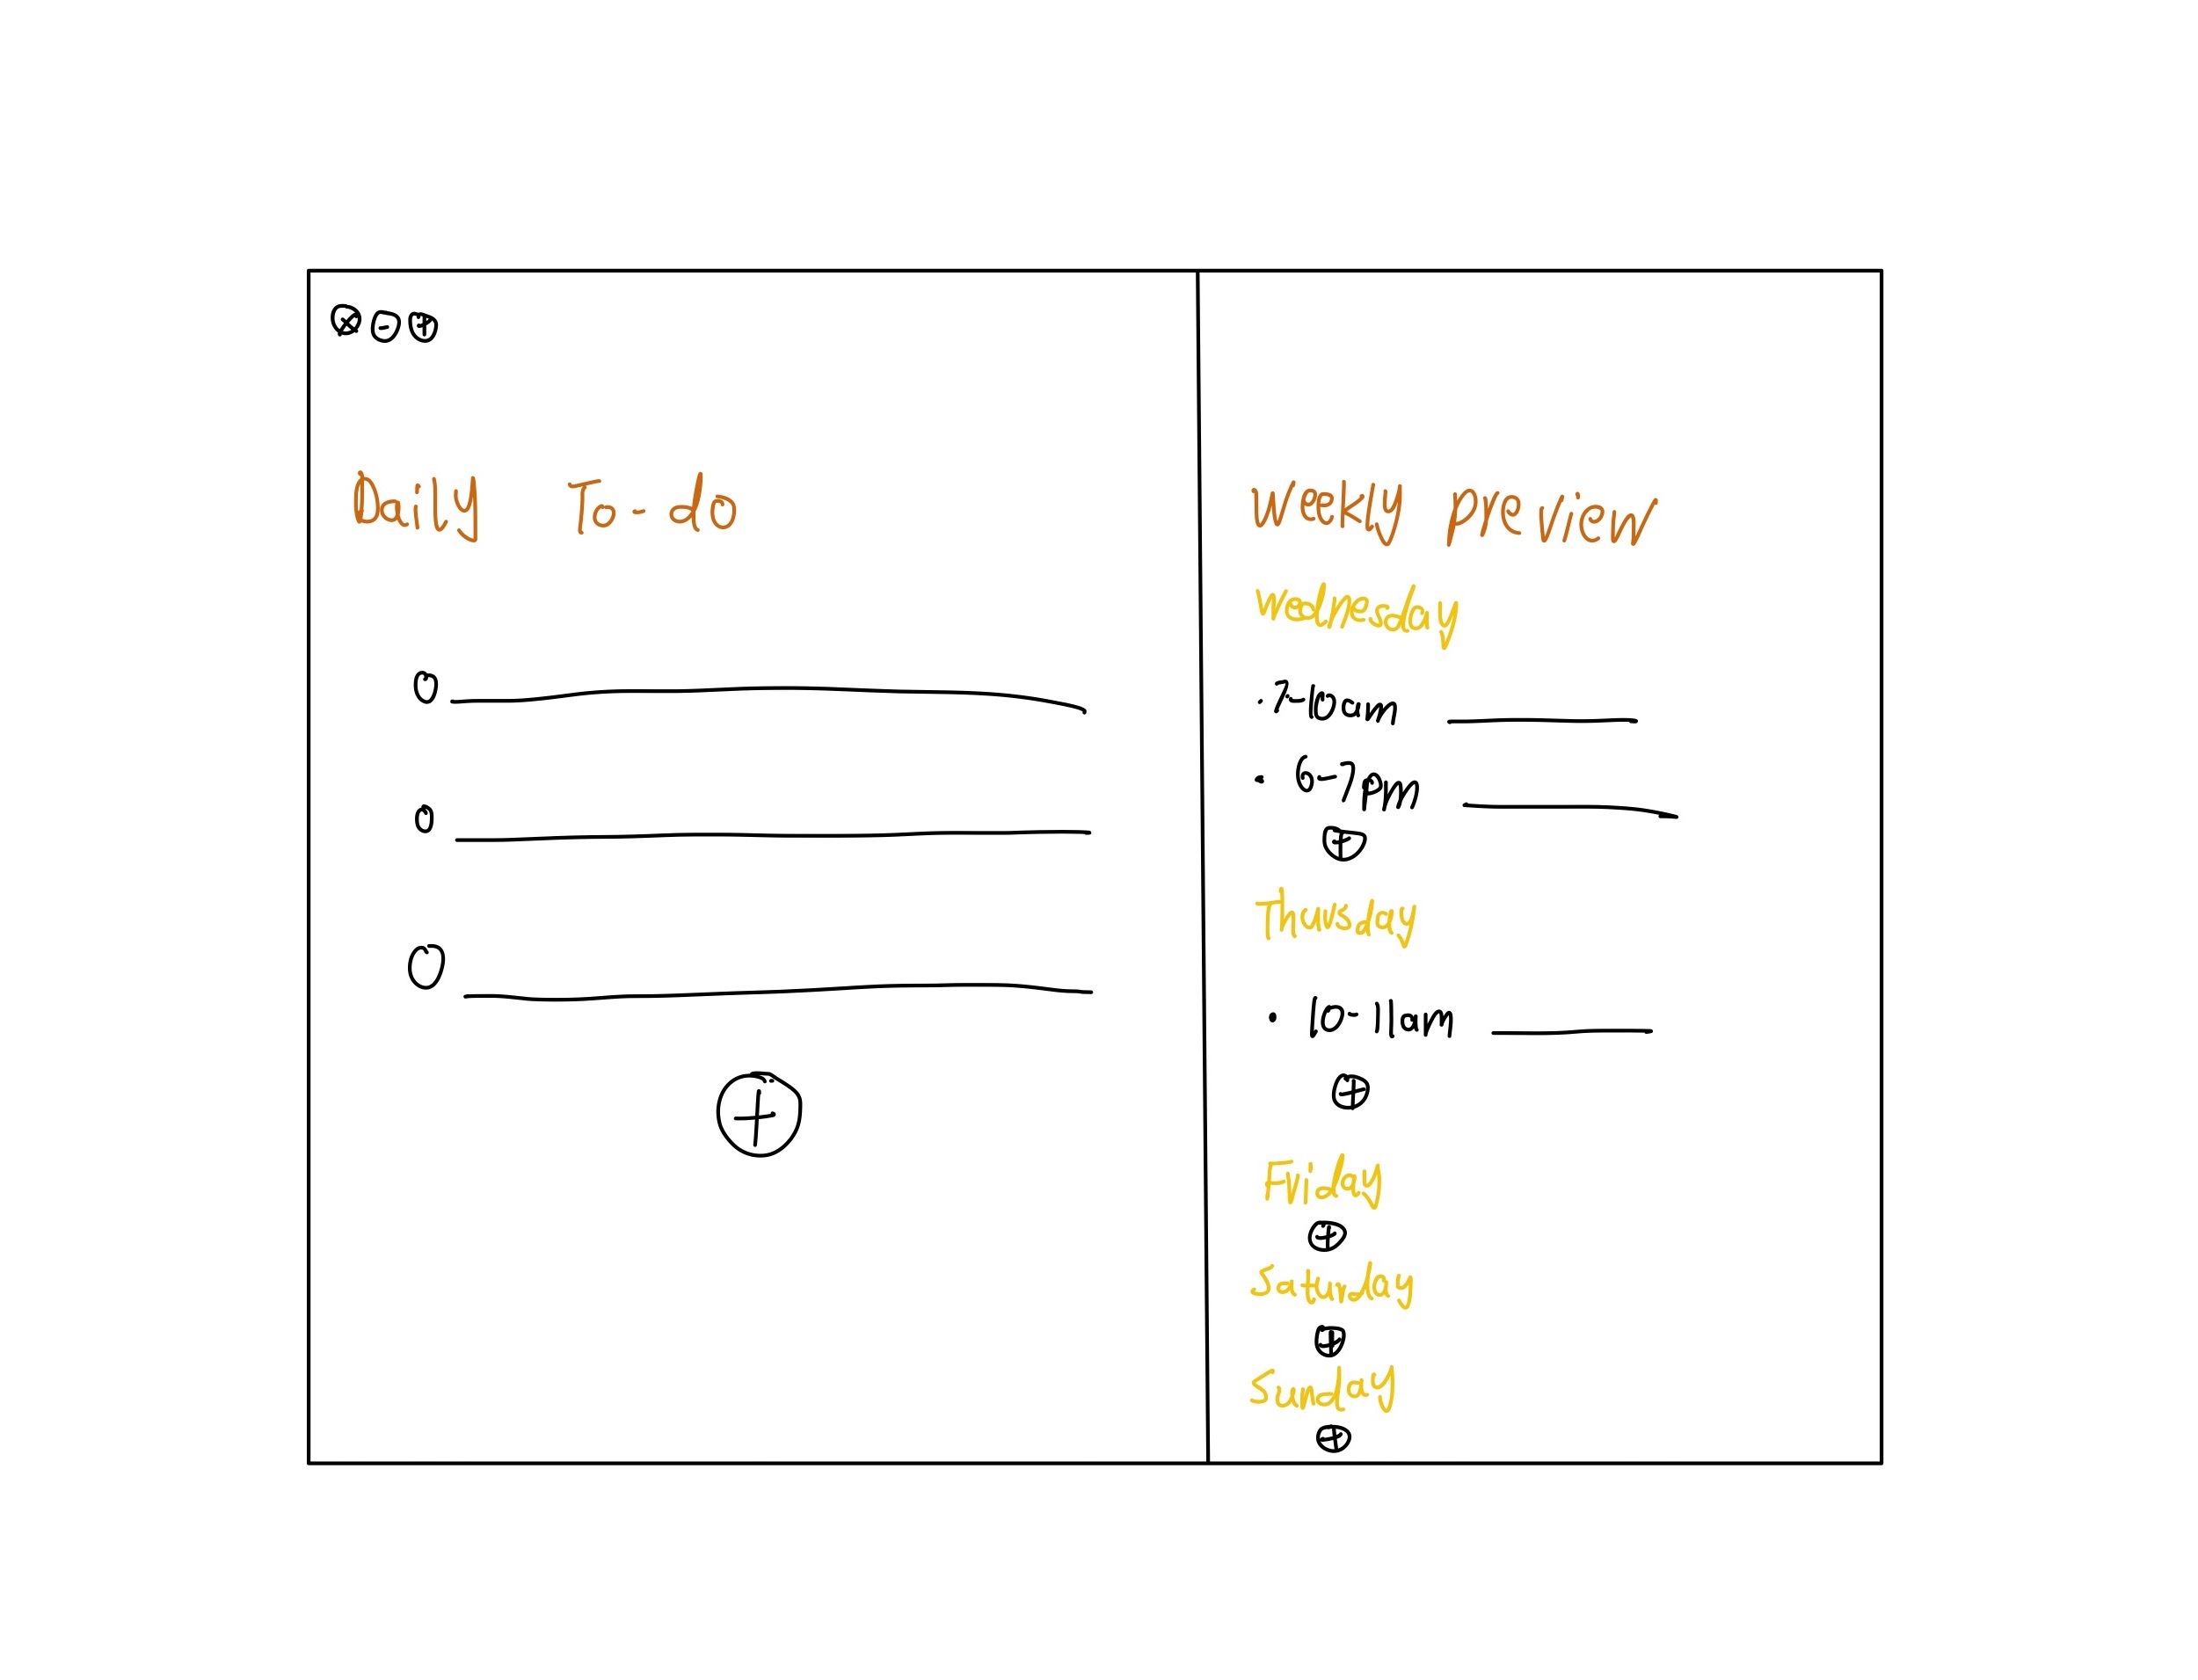 Daily To-do
Weekly preview
Wednesday
· 7-10am
· 6-7pm
Thursday
· 10-11am
Friday
Saturday
Sunday